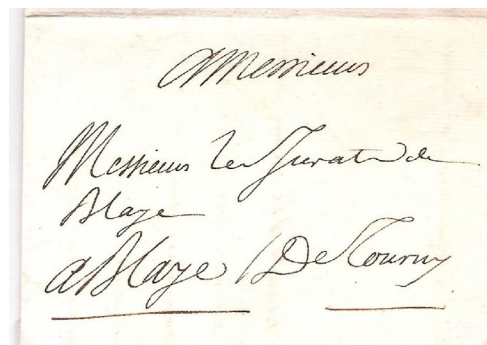 A Messieurs
Messieurs les Jurats de
Blaye
a Blaye De Tourny